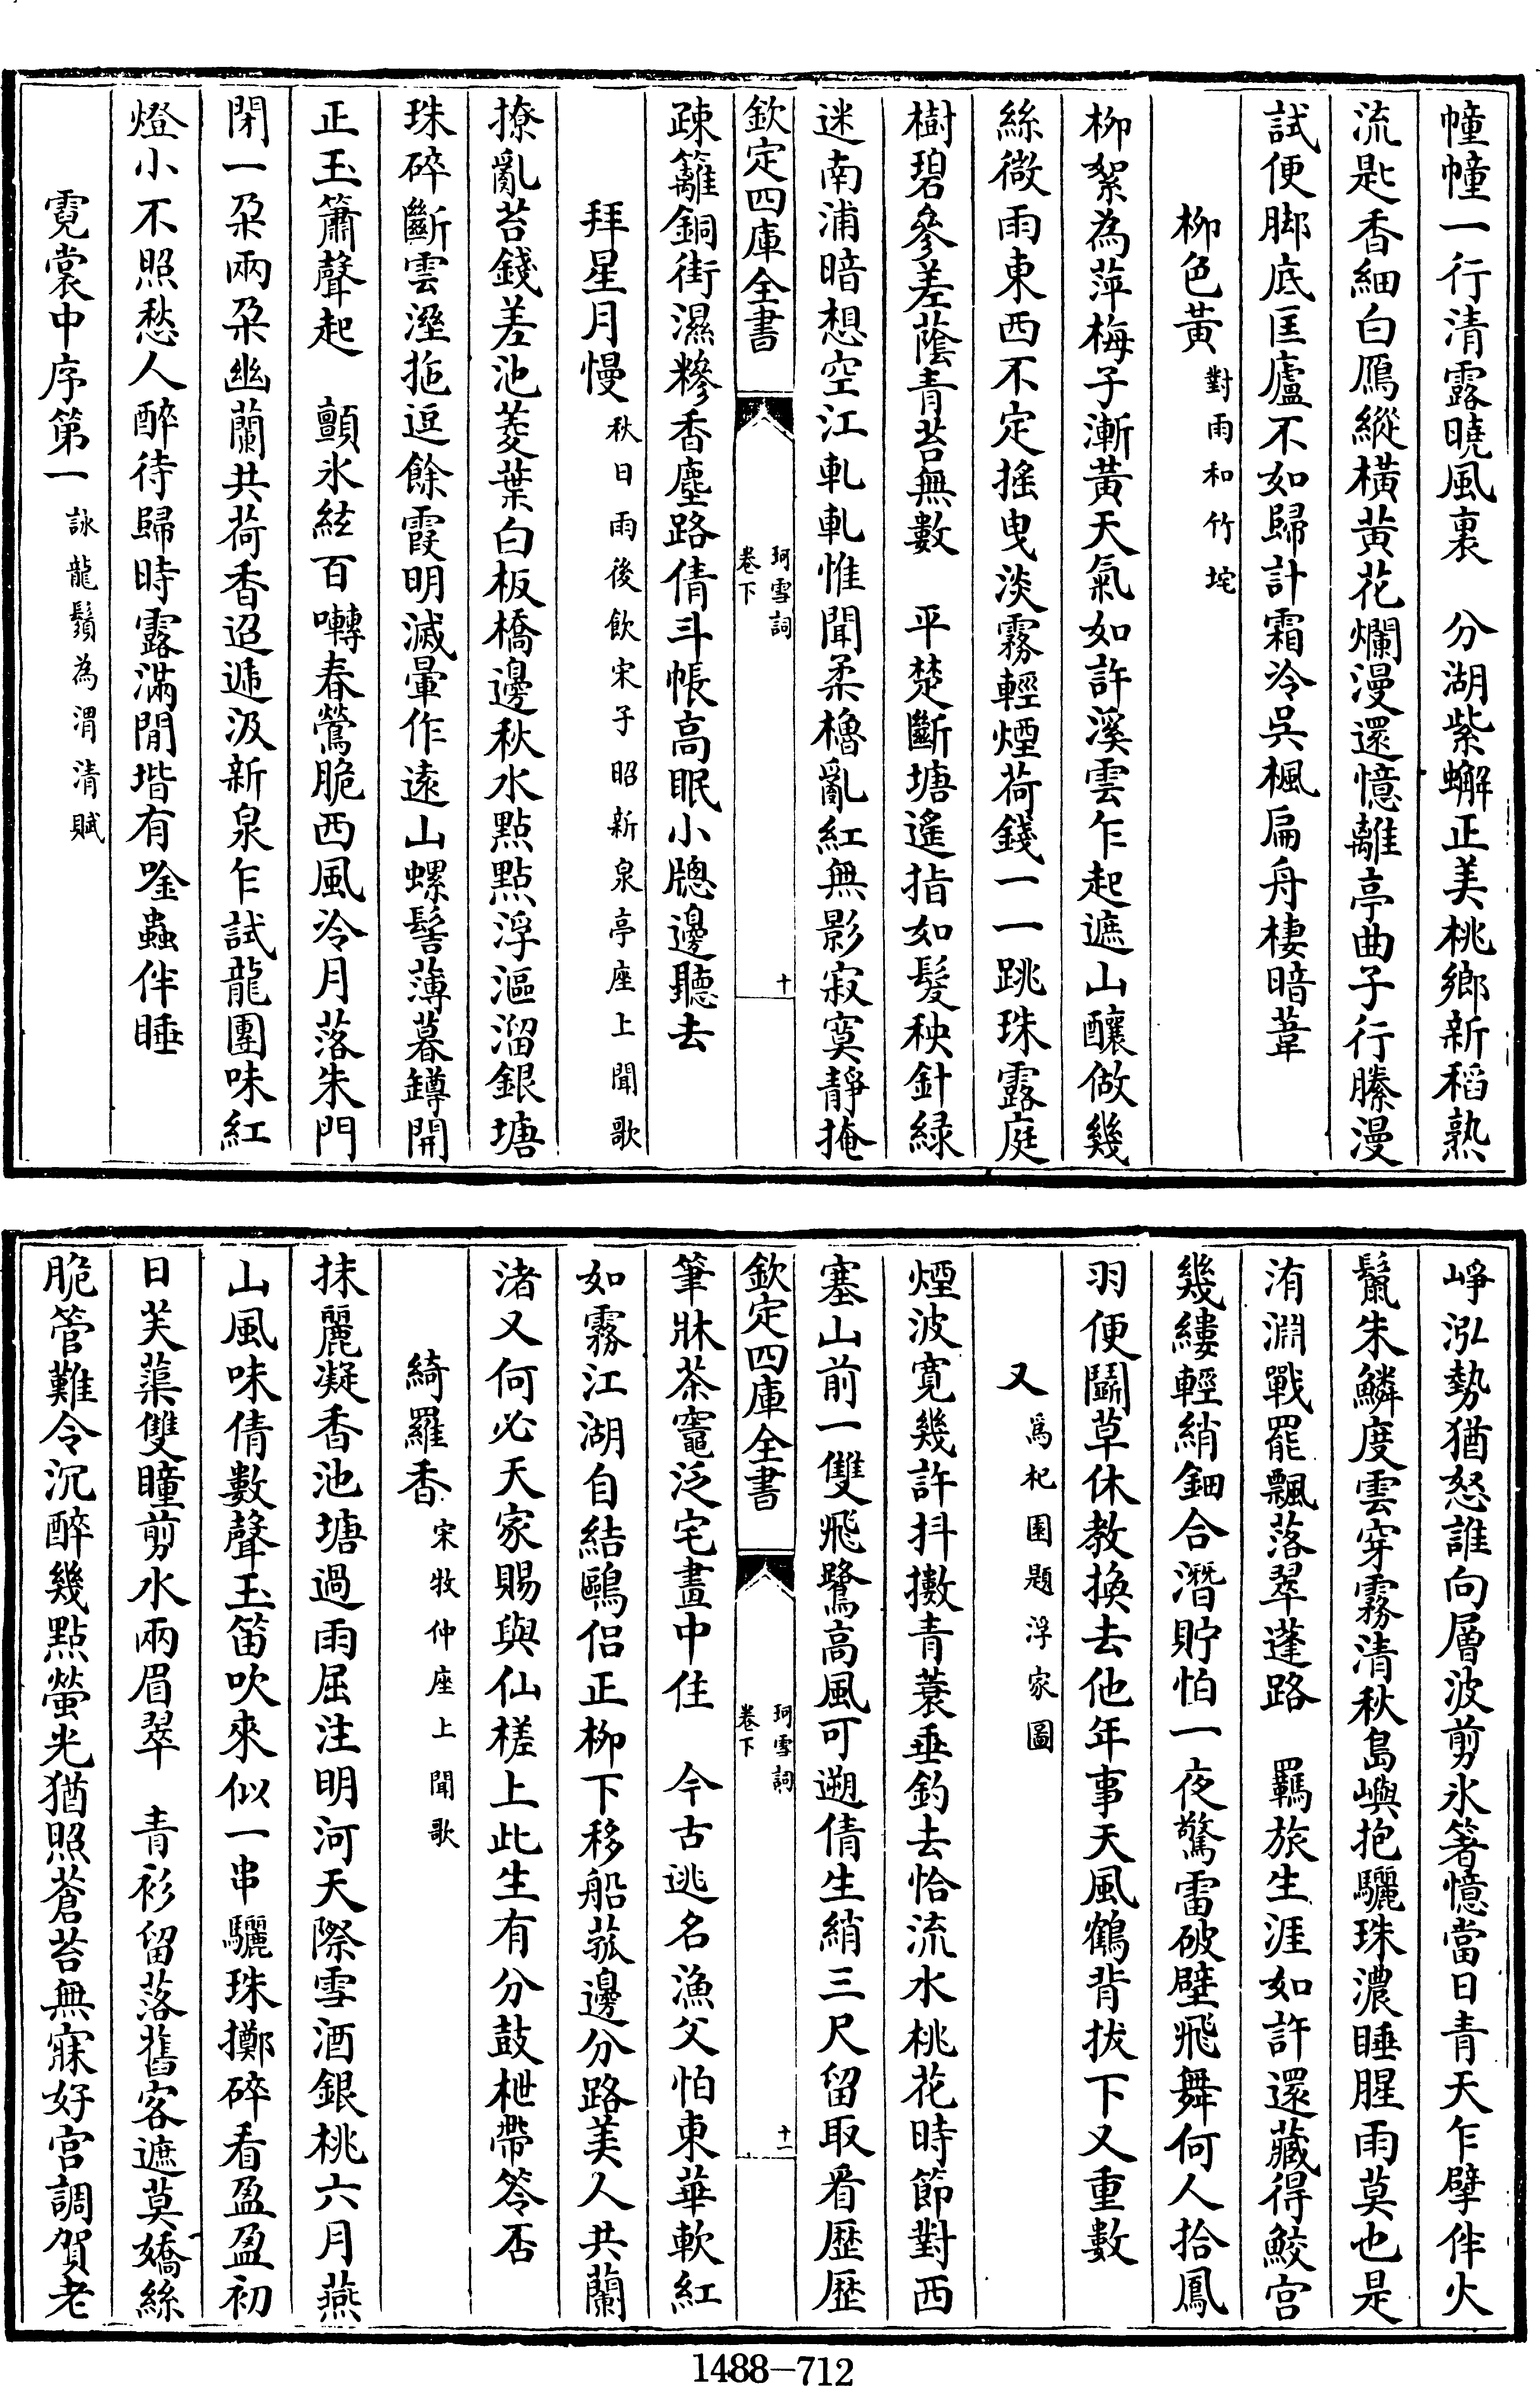 幢幢一行清露曉風裏　分湖紫蠏正美桃鄉新稻熟
流匙香細白鴈縱橫黃花爛漫還憶離亭曲子行縢漫
試便脚底匡廬不如歸計霜冷吳楓扁舟棲暗葦
柳色黃對雨和竹垞
柳絮為萍梅子漸黃天氣如許溪雲乍起遮山釀做幾
絲微雨東西不定搖曳淡霧輕煙荷錢一一跳珠露庭
樹碧參差蔭青苔無數　平楚斷塘遙指如髮秧針緑
迷南浦暗想空江軋軋惟聞柔櫓亂紅無影寂寞靜掩
欽定四庫全書　珂雪詞卷下　十
疎籬銅街濕糝香塵路倩斗帳高眠小牎邊聽去
拜星月慢秋日雨後飲宋子昭新泉亭座上聞歌
撩亂苔錢差池菱葉白板橋邊秋水點點浮漚溜銀塘
珠碎斷雲溼拖逗餘霞明滅暈作遠山螺髻薄暮罇開
正玉簫聲起　顫氷絃百囀春鶯脆西風冷月落朱門
閉一朶兩朶幽蘭共荷香迢遞汲新泉乍試龍團味紅
燈小不照愁人醉待歸時露滿閒堦有唫蟲伴睡
霓裳中序第一詠龍鬚為渭清賦
崢泓勢猶怒誰向層波剪氷箸憶當日青天乍擘伴火
鬣朱鱗度雲穿霧清秋島嶼抱驪珠濃睡腥雨莫也是
洧淵戰罷飄落翠蓬路　羈旅生涯如許還藏得鮫宮
幾縷輕綃鈿合潛貯怕一夜驚雷破壁飛舞何人拾鳳
羽便鬭草休教換去他年事天風鶴背拔下又重數
又爲杞園題浮家圖
煙波寛幾許抖擻青蓑垂釣去恰流水桃花時節對西
塞山前一雙飛鷺高風可遡倩生綃三尺留取看歷歷
欽定四庫全書　珂雪詞卷下　十一
筆牀茶竈泛宅畫中住　今古逃名漁父怕東華軟紅
如霧江湖自結鷗侶正柳下移船菰邊分路美人共蘭
渚又何必天家賜與仙槎上此生有分鼓枻帶笭否
綺羅香宋牧仲座上聞歌
抹麗凝香池塘過雨屈注明河天際雪酒銀桃六月燕
山風味倩數聲玉笛吹來似一串驪珠擲碎看盈盈初
日芙蕖雙瞳剪水兩眉翠　青衫留落舊客遮莫嬌絲
脆管難令沉醉幾點螢光猶照蒼苔無寐好宮調賀老
1488—712